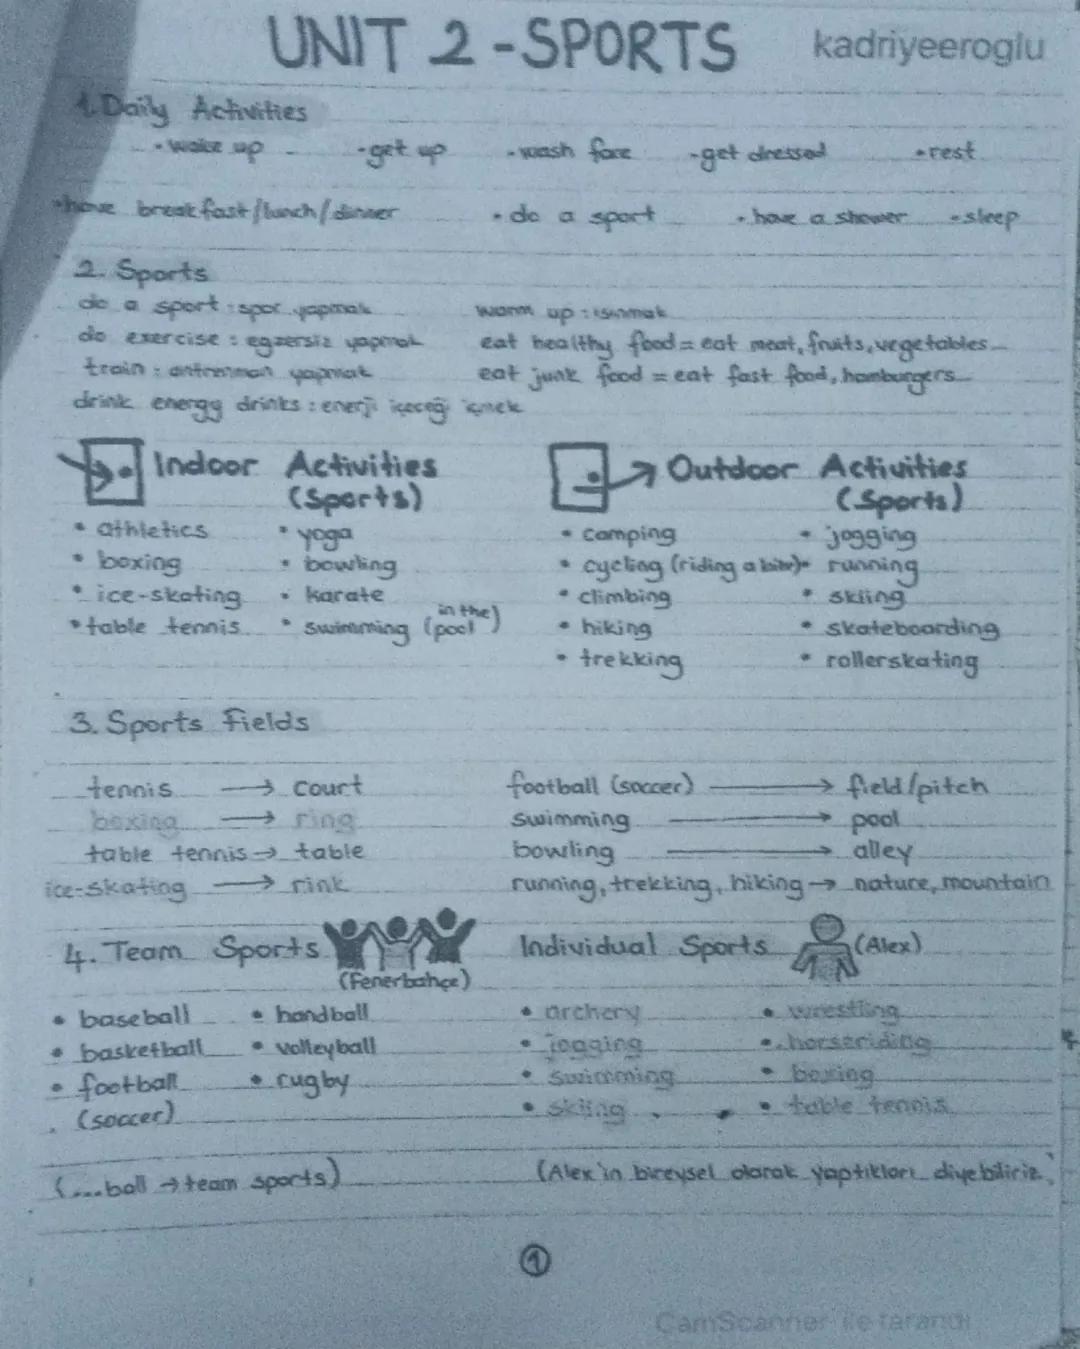 UNIT 2 - SPORTS
kadriyeeroglu
1. Daily Activities
• wake up • get up • wash face • get dressed • rest
• have breakfast/lunch/dinner • do a sport • have a shower • sleep
2. Sports
do a sport : spor yapmak
warm up : ısınmak
do exercise : egzersiz yapmak
eat healthy food = eat meat, fruits, vegetables...
train : antrenman yapmak
eat junk food = eat fast food, hamburgers...
drink energy drinks : enerji içeceği içmek
Indoor Activities
(Sports)
• athletics • yoga
• boxing • bowling
• ice-skating • karate
• table tennis • swimming (in the pool)
Outdoor Activities
(Sports)
• camping • jogging
• cycling (riding a bike) • running
• climbing • skiing
• hiking • skateboarding
• trekking • rollerskating
3. Sports Fields
tennis → court
football (soccer) → field/pitch
boxing → ring
swimming → pool
table tennis → table
bowling → alley
ice-skating → rink
running, trekking, hiking → nature, mountain
4. Team Sports
(Fenerbahçe)
• baseball • handball
• basketball • volleyball
• football • rugby
(soccer)
(...ball → team sports)
Individual Sports (Alex)
• archery • wrestling
• jogging • horseriding
• swimming • boxing
• skiing • table tennis
(Alex'in bireysel olarak yaptıkları diyebiliriz.)
1
CamScanner ile tarandı